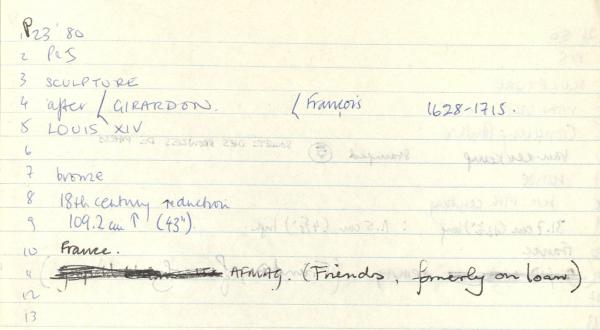 1 P23'80
2 P&S
3 SCULPTURE
4 after ⟨ GIRARDON. ⟨ François 1628-1715.
5 LOUIS XIV
6
7 bronze
8 18th century reduction
9 109.2 cm ↑ (43")
10 France.
11 AFMAG. (Friends, formerly on loan)
12
13